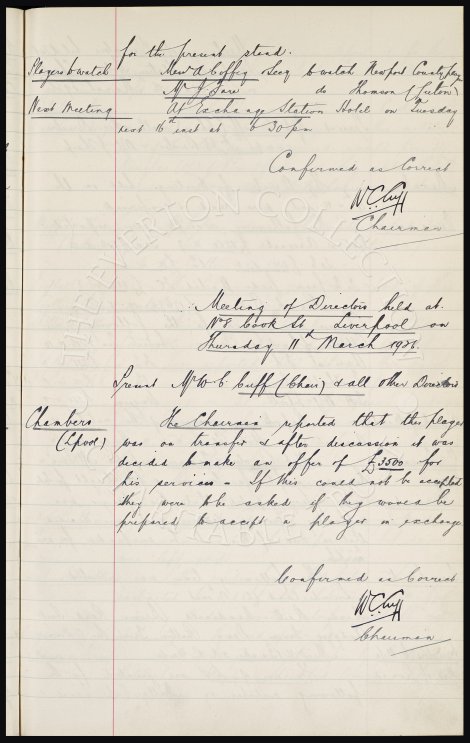 for the present stand.
Players to watch Messrs A Coffey & Secy to watch Newport County play
Mr J Sare do Thomson (Luton)
Next Meeting At Exchange Station Hotel on Tuesday
next 16th inst at 6 30 pm
Confirmed as Correct
W.C. Cuff
Chairman
Meeting of Directors held at
No 8 Cook St Liverpool on
Thursday 11th March 1926.
Present Mr W.C. Cuff (Chair) & all other Directors
Chambers The Chairman reported that this player
(Lpool) was on transfer & after discussion it was
decided to make an offer of £3500 for
his services – If this could not be accepted
they were to be asked if they would be
prepared to accept a player in exchange
Confirmed as Correct
W.C. Cuff
Chairman
THE EVERTON COLLECTION